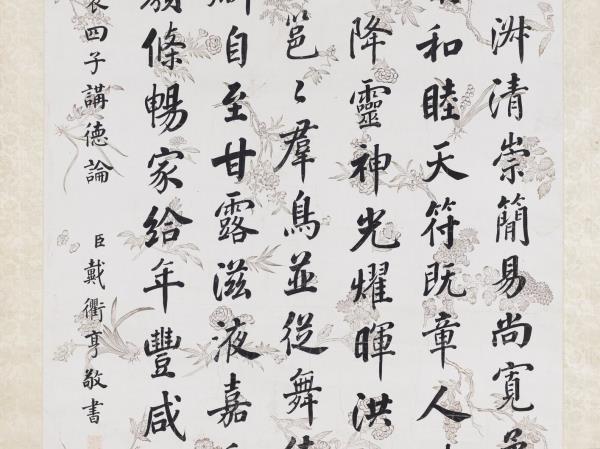 淑清崇簡易尚寬
和睦天符既章人
降靈神光燿暉洪
邕〻羣鳥並從舞
自至甘露滋液嘉
條暢家給年豐咸
四子講德論 臣戴衢亨敬書